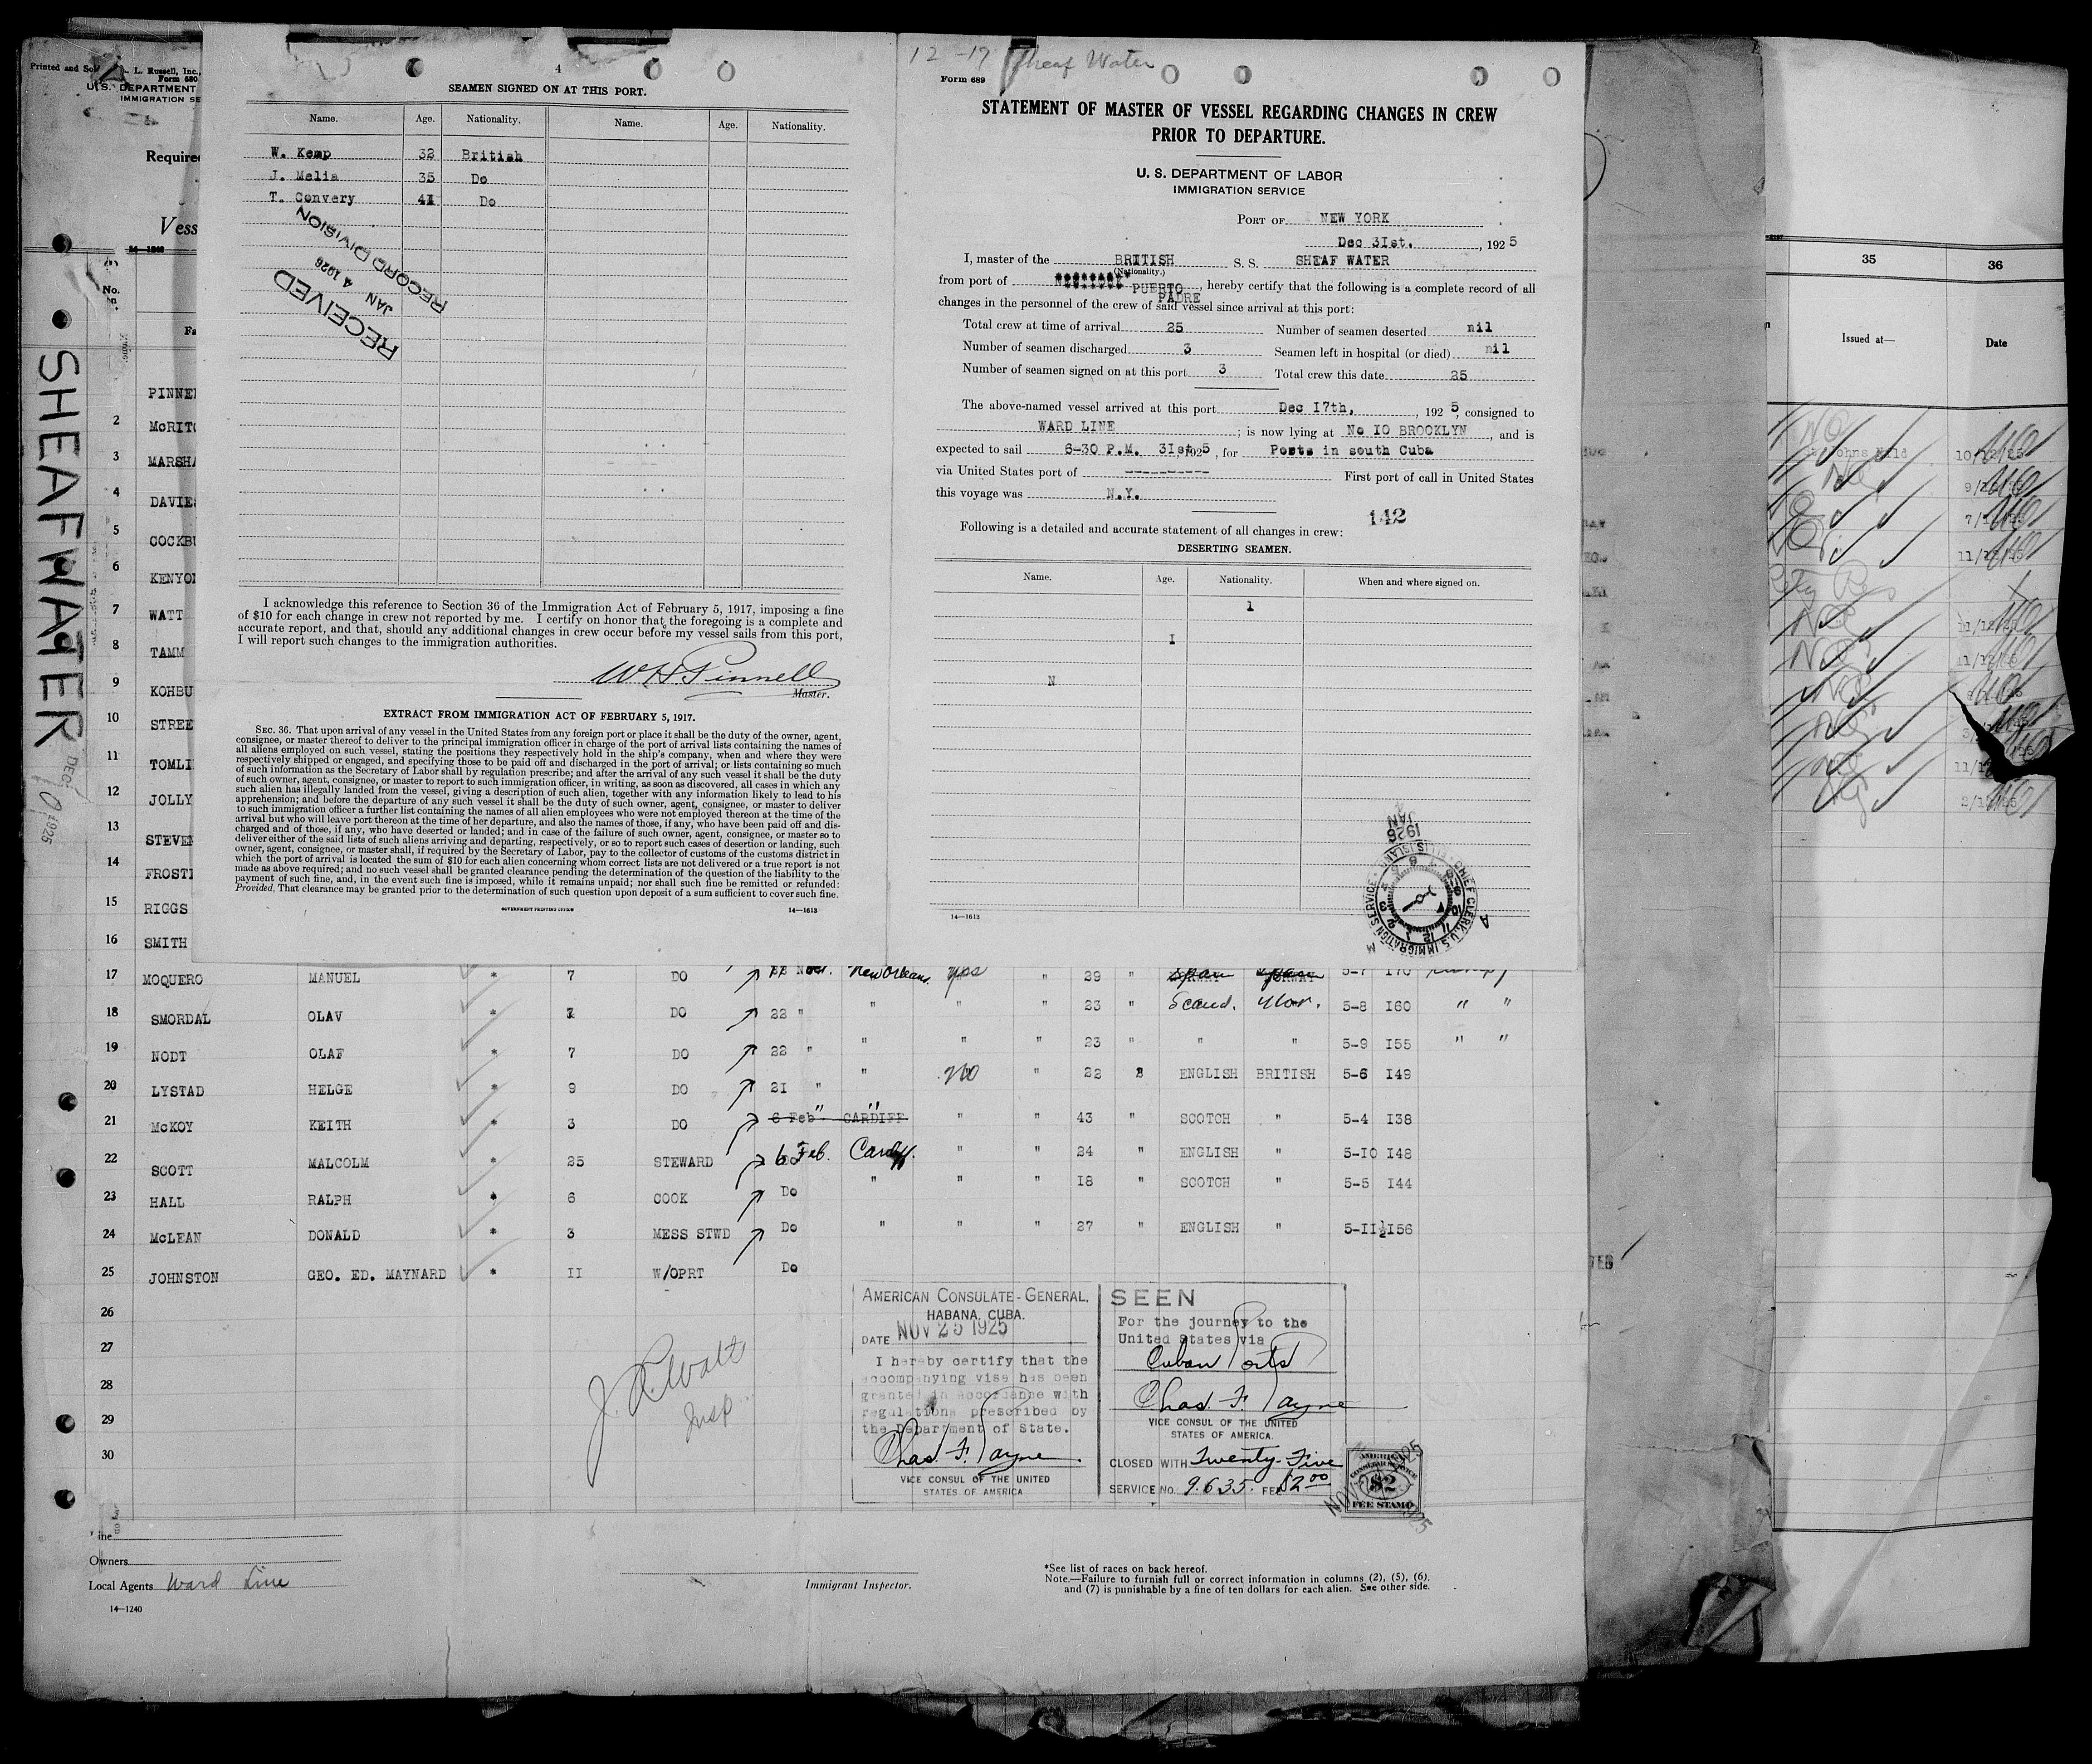 Printed and Sol
L. Russell, Inc.,
Form 680
U.S. DEPARTMENT
IMMIGRATION SE
Require
Vess
No.
SHEAFWATER
DEC
1925
PINNE
2 McRIT
3 MARSHA
4 DAVIE
5 COCKB
6 KENYO
7 WATT
8 TAMM
9 KOHBU
10 STREE
11 TOMLI
12 JOLLY
13 STEVEN
14 FROST
15 RIGGS
16 SMITH
4
SEAMEN SIGNED ON AT THIS PORT.
Name. Age. Nationality. Name. Age. Nationality.
W. Kemp 32 British
J. Melia 35 Do
T. Convery 41 Do
RECEIVED
JAN 4 1926
RECORD DIVISION
I acknowledge this reference to Section 36 of the Immigration Act of February 5, 1917, imposing a fine
of $10 for each change in crew not reported by me. I certify on honor that the foregoing is a complete and
accurate report, and that, should any additional changes in crew occur before my vessel sails from this port,
I will report such changes to the immigration authorities.
W H Pinnell
Master.
EXTRACT FROM IMMIGRATION ACT OF FEBRUARY 5, 1917.
SEC. 36. That upon arrival of any vessel in the United States from any foreign port or place it shall be the duty of the owner, agent,
consignee, or master thereof to deliver to the principal immigration officer in charge of the port of arrival lists containing the names of
all aliens employed on such vessel, stating the positions they respectively hold in the ship's company, when and where they were
respectively shipped or engaged, and specifying those to be paid off and discharged in the port of arrival; or lists containing so much
of such information as the Secretary of Labor shall by regulation prescribe; and after the arrival of any such vessel it shall be the duty
of such owner, agent, consignee, or master to report to such immigration officer, in writing, as soon as discovered, all cases in which any
such alien has illegally landed from the vessel, giving a description of such alien, together with any information likely to lead to his
apprehension; and before the departure of any such vessel it shall be the duty of such owner, agent, consignee, or master to deliver
to such immigration officer a further list containing the names of all alien employees who were not employed thereon at the time of the
arrival but who will leave port thereon at the time of her departure, and also the names of those, if any, who have been paid off and dis-
charged and of those, if any, who have deserted or landed; and in case of the failure of such owner, agent, consignee, or master so to
deliver either of the said lists of such aliens arriving and departing, respectively, or so to report such cases of desertion or landing, such
owner, agent, consignee, or master shall, if required by the Secretary of Labor, pay to the collector of customs of the customs district in
which the port of arrival is located the sum of $10 for each alien concerning whom correct lists are not delivered or a true report is not
made as above required; and no such vessel shall be granted clearance pending the determination of the question of the liability to the
payment of such fine, and, in the event such fine is imposed, while it remains unpaid; nor shall such fine be remitted or refunded:
Provided, That clearance may be granted prior to the determination of such question upon deposit of a sum sufficient to cover such fine.
GOVERNMENT PRINTING OFFICE 14—1613
12 - 17 Sheaf Water
Form 689
STATEMENT OF MASTER OF VESSEL REGARDING CHANGES IN CREW
PRIOR TO DEPARTURE.
U. S. DEPARTMENT OF LABOR
IMMIGRATION SERVICE
PORT OF NEW YORK
Dec 3Ist. , 192 5
I, master of the BRITISH S. S. SHEAF WATER
(Nationality.)
from port of PUERTO PADRE , hereby certify that the following is a complete record of all
changes in the personnel of the crew of said vessel since arrival at this port:
Total crew at time of arrival 25 Number of seamen deserted nil
Number of seamen discharged 3 Seamen left in hospital (or died) nil
Number of seamen signed on at this port 3 Total crew this date 25
The above-named vessel arrived at this port Dec I7th, , 192 5, consigned to
WARD LINE ; is now lying at No IO BROOKLYN , and is
expected to sail 6-30 P.M. 3Ist, 1925 , for Posts in south Cuba
via United States port of ---------- First port of call in United States
this voyage was N.Y.
142
Following is a detailed and accurate statement of all changes in crew:
DESERTING SEAMEN.
Name. Age. Nationality. When and where signed on.
l
I
N
14—1613
1926 JAN
CHIEF CLERK, U.S. IMMIGRATION SERVICE · ELLIS ISLAND
35 36
Issued at— Date
17 MOQUERO MANUEL * 7 DO New Orleans. yes " 29 " Spain
18 SMORDAL OLAV * DO 22 " " " " 23 " Scand. Nor. 5-8 I60 " "
19 NODT OLAF * 7 DO 22 " " " " 23 " " " 5-9 I55 " "
20 LYSTAD HELGE * 9 DO 21 " " No " 22 " ENGLISH BRITISH 5-6 I49
21 McKOY KEITH * 3 DO 6 Feb CARDIFF " " 43 " SCOTCH " 5-4 I38
22 SCOTT MALCOLM * 25 STEWARD 6 Feb. Cardiff. " " 24 " ENGLISH " 5-IO I48
23 HALL RALPH * 6 COOK Do " " " I8 " SCOTCH " 5-5 I44
24 McLEAN DONALD * 3 MESS STWD Do " " " 27 " ENGLISH " 5-II½ I56
25 JOHNSTON GEO. ED. MAYNARD * II W/OPRT Do
26
27
28
29
30
J. R. Watt
Insp
AMERICAN CONSULATE-GENERAL,
HABANA, CUBA.
DATE NOV 25 1925
I hereby certify that the
accompanying vise has been
granted in accordance with
regulations prescribed by
the Department of State.
Chas. F. Payne
VICE CONSUL OF THE UNITED
STATES OF AMERICA
SEEN
For the journey to the
United States via
Cuban Ports
Chas. F. Payne
VICE CONSUL OF THE UNITED
STATES OF AMERICA.
CLOSED WITH Twenty-Five
SERVICE NO. 9635. FEE $2.00
AMERICAN
CONSULAR SERVICE
$2
FEE STAMP
Line
Owners
Local Agents Ward Line
14—1240
Immigrant Inspector.
*See list of races on back hereof.
Note.—Failure to furnish full or correct information in columns (2), (5), (6),
and (7) is punishable by a fine of ten dollars for each alien. See other side.